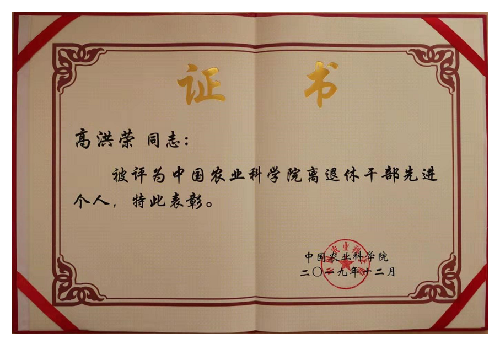 证 书
高洪荣 同志：
被评为中国农业科学院离退休干部先进
个人，特此表彰。
中国农业科学院
二〇一九年十二月